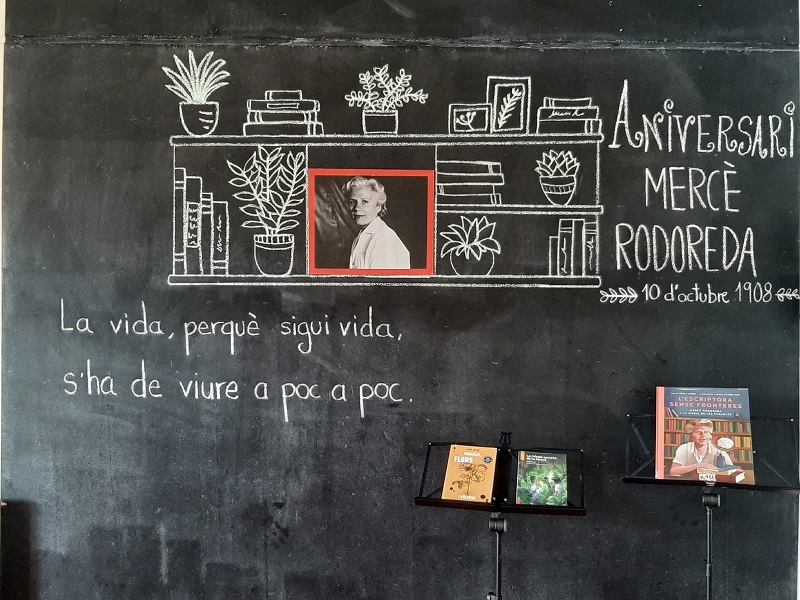 ANIVERSARI
MERCÈ
RODOREDA
10 d'octubre 1908
La vida, perquè sigui vida,
s'ha de viure a poc a poc.
FLORS
L'ESCRIPTORA
SENSE FRONTERES
MERCÈ RODOREDA